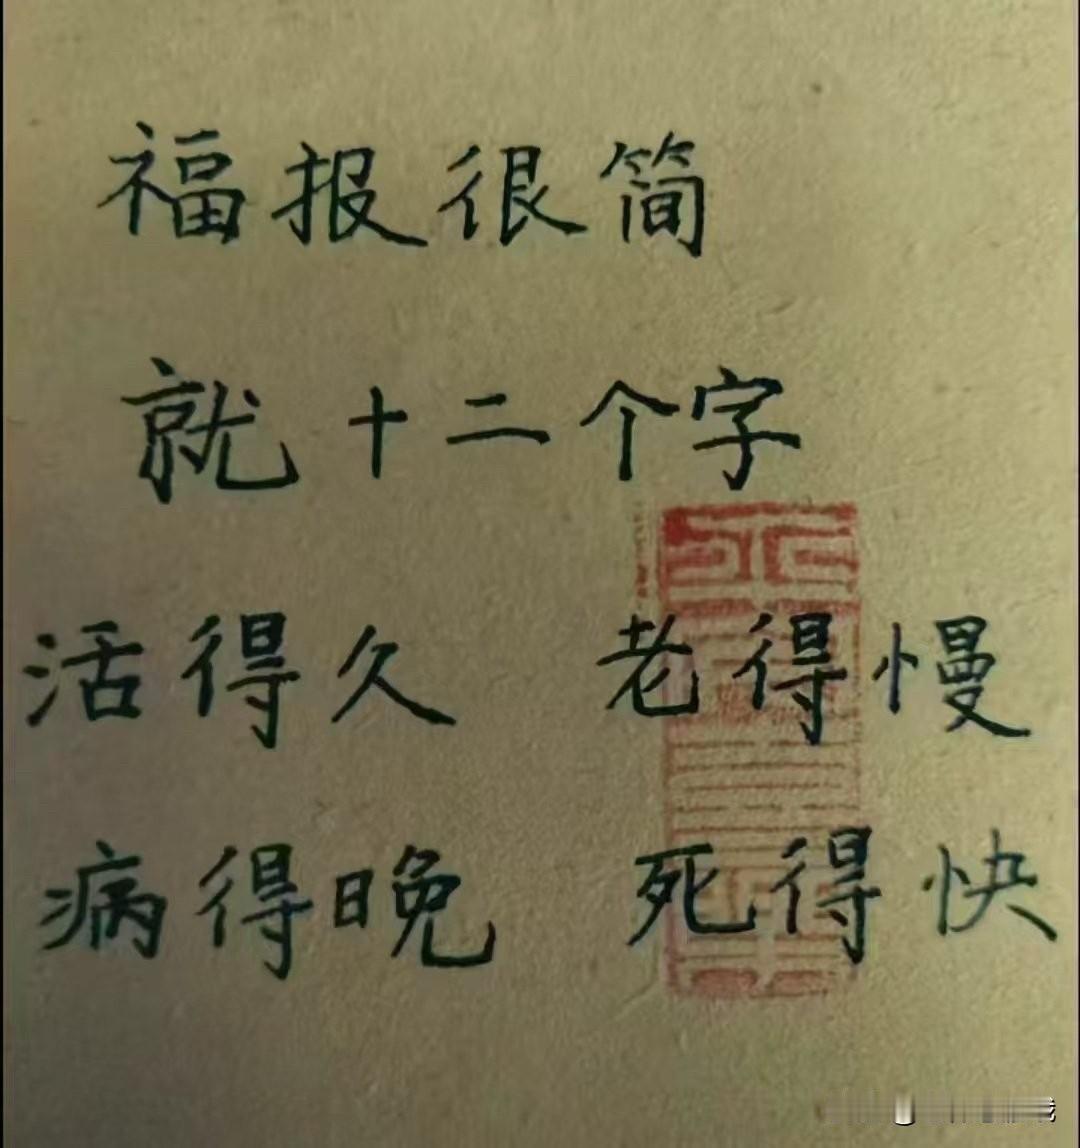 福报很简
就十二个字
活得久 老得慢
病得晚 死得快